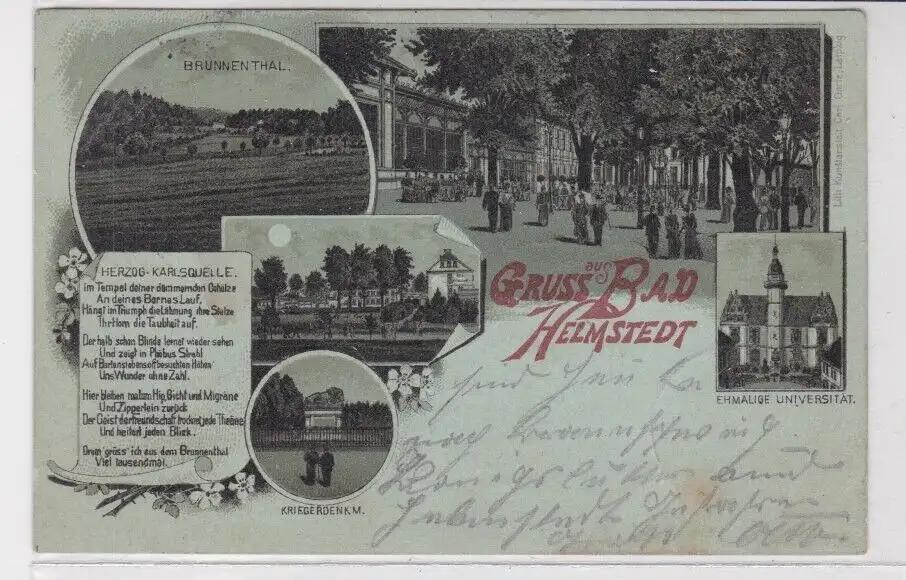 BRUNNENTHAL.
Lith. Kunstanstalt Carl Garte, Leipzig
HERZOG-KARLSQUELLE.
Im Tempel deiner dämmernden Gehölze
An deines Bornes Lauf,
Hängt im Triumph die Lähmung ihre Stelze
Ihr Horn die Taubheit auf.
Der halb schon Blinde lernet wieder sehen
Und zeigt in Phöbus Strahl
Auf Bartenslebens oft besuchten Höhen
Uns Wunder ohne Zahl.
Hier bleiben malum Hip, Gicht und Migräne
Und Zipperlein zurück
Der Geist der Freundschaft trocknet jede Thräne
Und heitert jeden Blick.
Drum grüss' ich aus dem Brunnenthal
Viel tausendmal.
GRUSS aus BAD
HELMSTEDT
EHMALIGE UNIVERSITÄT.
KRIEGERDENKM.
sind
nach Braunschweig
Königslutter und
Halberstadt